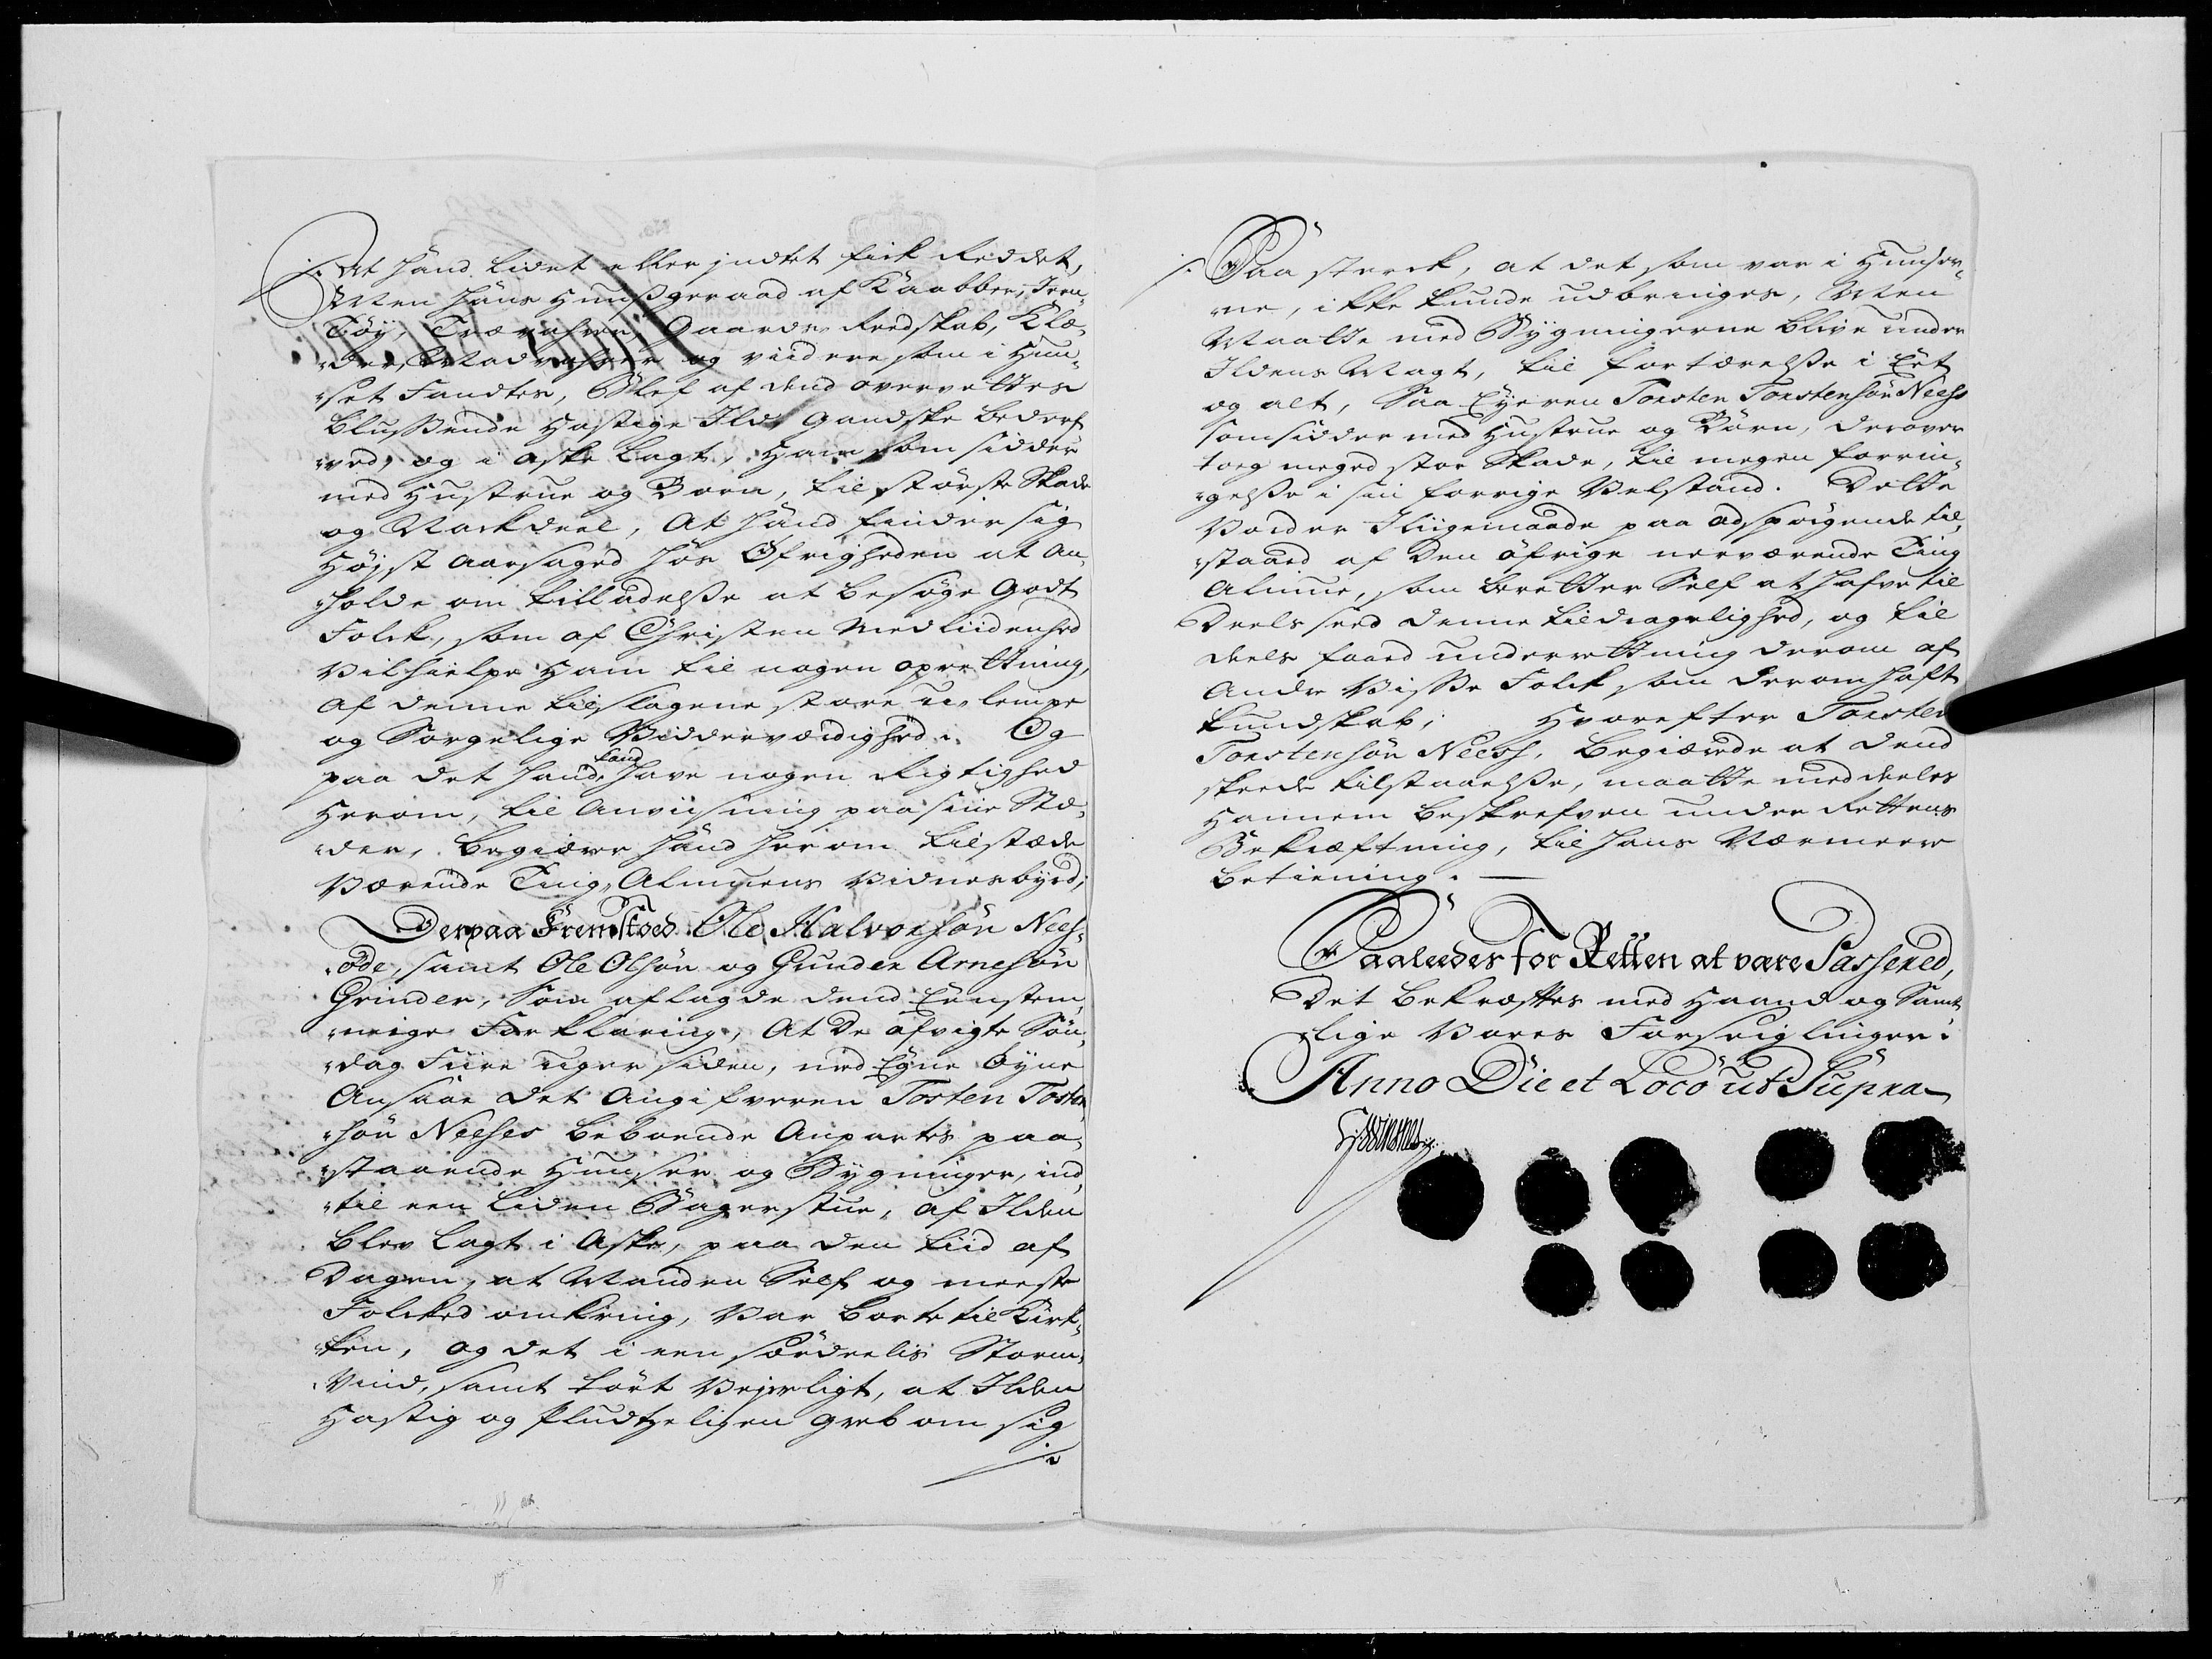 /: At Hand lidet eller intet fick Reddet,
Men Hans Huusgeraad af Kaabber, Jern-
Töy, Trævahrer Gaards Reedskab, Klæ-
der, Madvahrer og viidere som i Huu-
set Fandtes, Blef af dend overvættes
blussende Hastige Ild Gandske bederf-
ved, og i Aske Lagt, Ham som sidder
med Hustrue og Börn, til störste Skade
og Nackdeel, At Hand finder sig
Höyst aarsaged hos Öfrigheden at an-
holde om tilladelsse at besöge Godt
Folck, som af Christen Medliidenhed
Vil hielpe Ham til nogen oprettning,
af denne tilslagene store u-lempe
og Sorgelige Viddervædighed. Og
paa det Hand kand Have nogen Rigtighed
Herom, til Anviisning paa sine Stæ-
der, Begiærer Hand Herom tilstæde
Værende Ting-Almuens Vidnesbyrd;
Derpaa Fremstoed Ole Halvorsön Nees-
öde, samt Ole Olsön og Gunder Arnesön
Grinder, Som aflagde dend Eenstem-
mige Forklaring, At De afvigte Sön-
dag Fiire uger siden, med Egne öyne
Ansaae det Angifveren Torsten Torsten-
sön Neeses beboende Anpartes paa-
staaende Huuser og Bygninger, ind-
til een Liden Bagerstue, af Ilden
blev lagt i Aske, paa den tiid af
Dagen, at Manden Self og meeste
Folcked omkring, Var borte til Kirk-
ken, og det i een særdeelis Storm-
Vind, samt tört Veyerligt, at Ilden
Hastig og pludtzeligen greb om sig
/:
/: Saa sterck, at det som var i Huuser-
ne, ikke kunde udbringes, Men
Maatte med Bygningerne blive under
Ildens Magt, til fortærelsse i Eet
og alt, Saa Eyeren Torsten Torstensön Neess
som sidder med Hustrue og Börn, derover
toeg meged stor Skade, til megen forrin-
gelsse i sin forrige Velstand. Dette
Vorder Iligemaade paa adspörgende til-
staaed af Den öfrige nerværende Ting
Almue, som beretter Self at hafve til
Deels seed denne tildragelighed, og til
deels faaed underrettning derom af
Andre Visse Folck som derom haft
kundskab; Hvorefter Torsten
Torstensön Neess, begiærede at dend
skeede tilstaaelsse, maatte meddeeles
Hannem beskrefven under Rettens
Bekræftning, til Hans Nærmere
betiening.
Saaledes for Retten at være Passered,
Det bekræftes med Haand og Samt-
lige Vores Forseiglinger.
Anno Die et Loco ut Supra